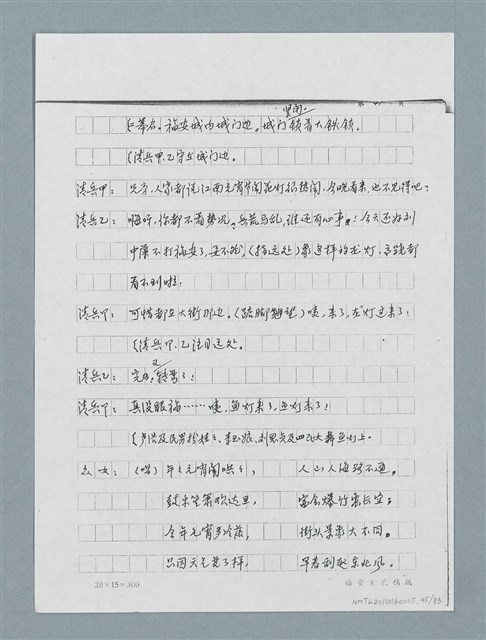 坚闭
〔幕启。福安城内城门边。城门锁着大铁锁。
〔清兵甲、乙守在城门边。
清兵甲：兄弟，人家都说江南元宵节闹花灯很热闹，今晚看来，也不见得吧？
清兵乙：嗨呀，你都不看势况，兵荒马乱，谁还有心事！今天还好刘
中藻不打福安了，要不然，（指远处）象这样的龙灯，高跷都
看不到啦！
清兵甲：可惜都在大街那边。（踮脚翘望）咦，来了，龙灯过来了！
〔清兵甲、乙注目远处。
清兵乙：完了，又转弯了！
清兵甲：真没眼福……咦，鱼灯来了，鱼灯来了！
众女：（唱）年年元宵闹哄哄，人山人海路不通。
鼓乐笙箫吹达旦，富余爆竹震长空；
今年元宵多冷落，街头景象大不同。
只因天气变了样，早春刮起东北风。
20×15=300
福安文艺稿纸
NMTL20110160005.45/83